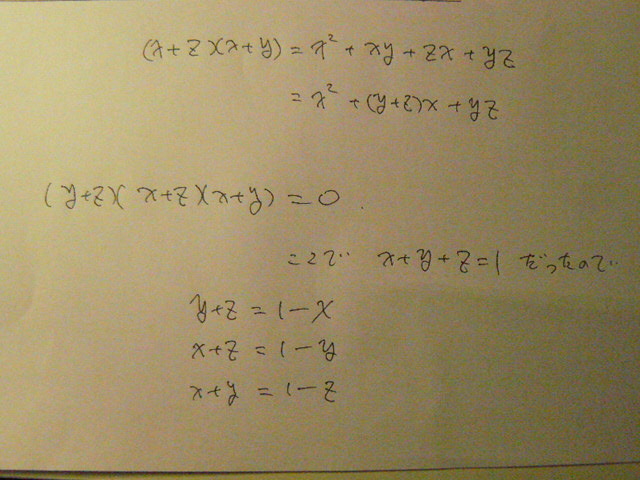 (x+z)(x+y) = x² + xy + zx + yz
= x² + (y+z)x + yz
(y+z)(x+z)(x+y) = 0.
ここで x+y+z=1 だったので
y+z = 1-x
x+z = 1-y
x+y = 1-z